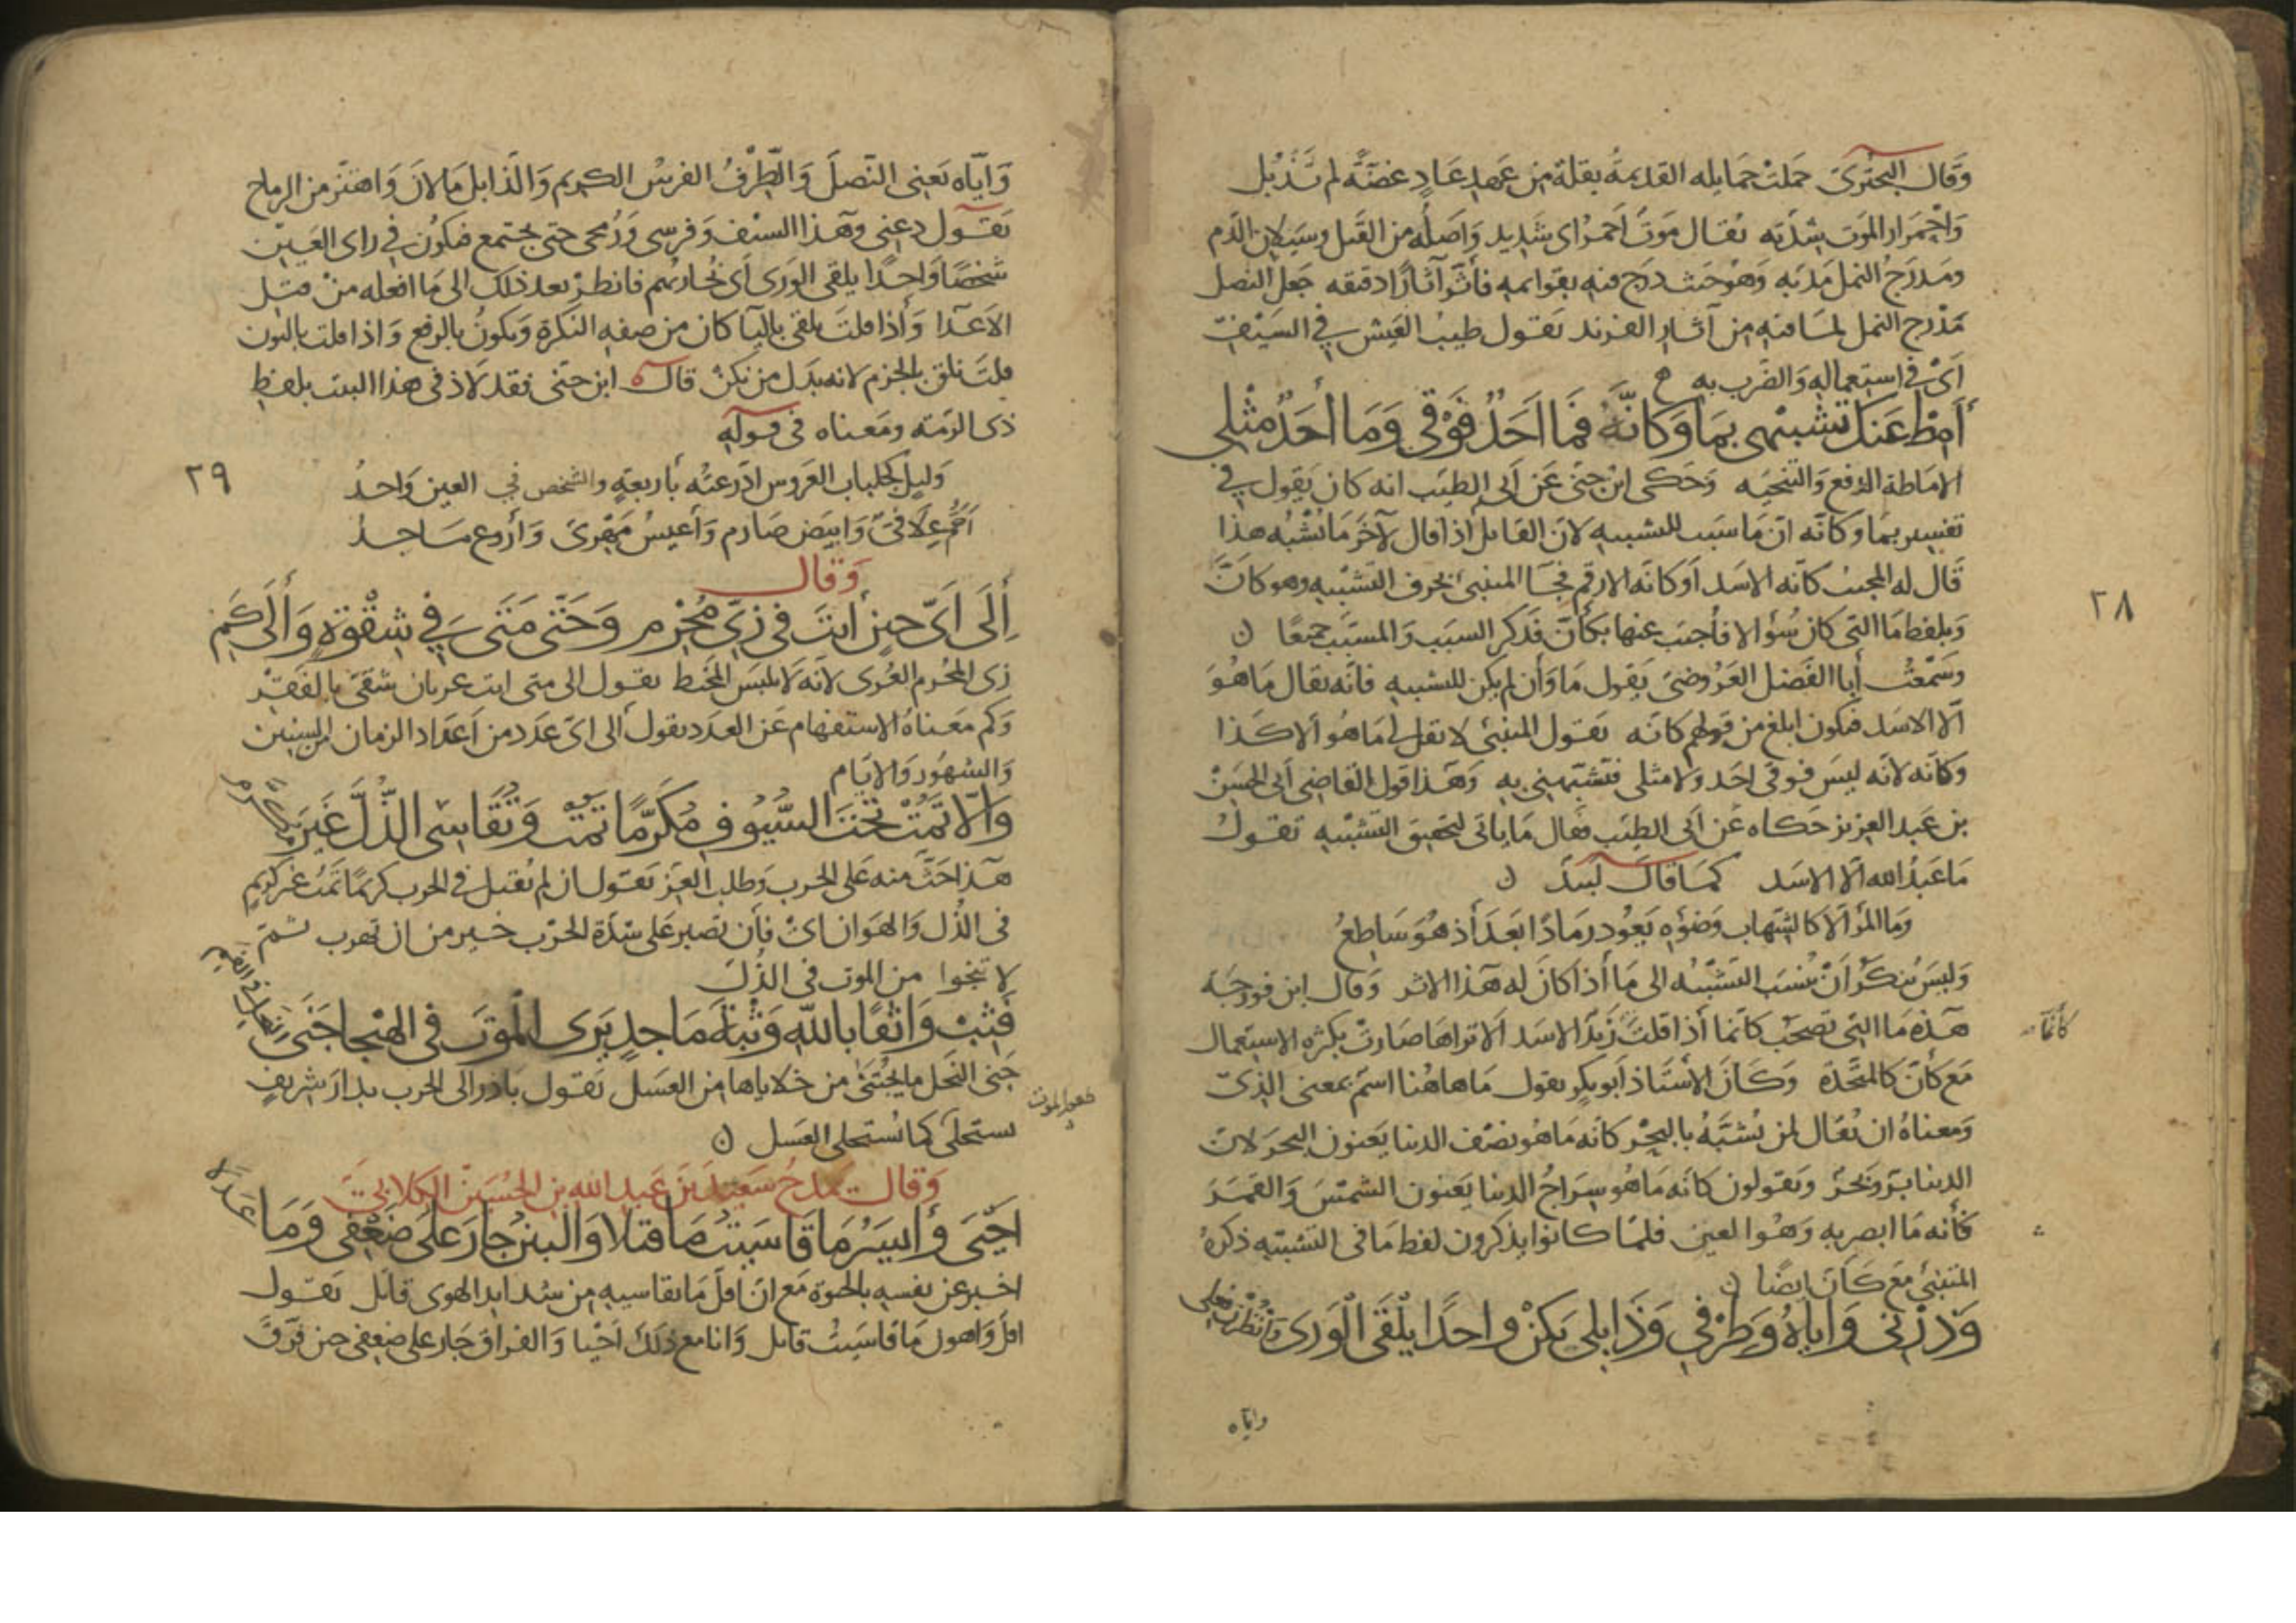 وَقَال البحترىّ حَملتْ حمَايله القديمةُ بقلةً من عَهد عَادٍ غضّةً لم تَذْبُل
وَاحْمرار الموت شدّته يُقال مَوتٌ احمرُ اى شديد وَاصَلُه من القَتل وسَيلان الدّم
ومَدرَجُ النمل مَدبّه وَهو حَيث درَج فيه بقوايمه فأثّر آثارًا دقيقه جَعل النصل
مَدْرج النمل لما فيه من آثار الفرند يَقول طيب العَيش في السَيف
اىْ فى استعماله وَالضَرب به
أمِطْ عَنكَ تشبيهى بمَا وَكَانّهُ فمَا احَدٌ فَوْقي وَمَا أحَدٌ مثْلي
الامَاطة الدفع وَالتنحيَه وَحَكى ابن جنّى عَن ابى الطيّب انه كان يَقول في
تفسير بمَا وكانّه انّ مَا سَبب للتشبيه لان القايل اذا قال لآخَر مَا تُشْبّه هذا
قَال له المجيب كانّه الاسَد اَو كانّه الارقم فجآ المتنبى بحرف التشبيه وهو كانّ
وَبلفظ مَا التى كان سُؤالا فأجيب عنها بكأنّ فذكر السبَب وَالمسبّب جميعًا
وسَمعْتُ أبا الفَضل العَرُوضىّ يَقول مَا وَأن لم يكن للتشبيه فانّه يقال مَا هُوَ
الّا الاسَد فيكون ابلغ من قولهم كانّه يَقول المتنبّى لا تقل لى مَا هُو الّا كَذا
وَكانّه لانّه ليسَ فوقى احَد وَلا مثلى فتشبّهنى به وَهَذا قول القاضى ابى الحسَن
بن عَبد العزيز حَكاه عَن ابى الطيّب فقال مَا ياتى لتحقيق التشبيه تقول
مَا عَبدُ الله الّا الاسَد كمَا قالَ لبيدٌ
وَما المرْ الّا كالشّهاب وَضوْه يَعُود رمَادًا بَعدَ أذ هُوَ سَاطعُ
وَليسَ بمنكر أنْ يُنسَب التشبيه الى مَا أذا كانَ له هَذا الاثر وَقال ابن فورجَه
هَذه مَا التى تصحَب كانّما أذا قلتَ زيدٌ الاسَد الّا تراها صَارتْ بكثره الاستعمال
كأنما
مَع كأنّ كالمتّحدة وَكَانَ الأسْتاذ أبو بكر يقول مَا هاهُنا اسمٌ بمعنى الذىْ
وَمعناهُ ان يُقال لمن يُشبَّهُ بالبحر كانّه مَا هُو نصْف الدنيا يَعنون البحر لان
الدنيا برّ وبحَرٌ وَيَقولون كانّه مَا هُو سِرَاجُ الدنيا يَعنون الشمسَ وَالقمَر
فأنه مَا ابصر به وَهُوا لعين فلمّا كانوا يذكرون لفظ مَا فى التشبيه ذكرهُ
المتنبى مَع كَأنّ ايضًا
وَذرْنى وَاياهُ وَطِرْفي وَذَابلي يَكنْ واحدًا يلْقَى الْوَرى وَأنْظُرَنْ فعلى
واياه
٢٨
وَايّاه يَعنى النّصلَ وَالطِّرْفُ الفرسُ الكريم وَالذابل مَا لانَ وَاهتز من الرماح
يَقول دعنى وهَذا السيْف وَفرسى وَرُمحى حتى يجتمع فيكون في راى العَين
شخصًا وَاحِدًا يلقى الورَى أى يُحاربهم فانظرْ بعد ذلك الى مَا افعله منْ قتل
الاعَدا وَأذا قلتَ يلقى باليآ كان من صفه النكرة وَيكونُ بالرفع وَاذا قلت بالنون
قلتَ نلق بالجزم لانه بدَل من نكنْ قالَ ابن جنّى فقد لَاذ فى هذا البيت بلفظ
ذى الرمّه ومَعناه فى قوله
وَليلٍ كجلباب العَروس ادّرعتُه بأربعةٍ والشخص في العين وَاحدُ
احمُّ عِلَافىٌّ وَابيَض صَارم وَأعيسُ مَهْرىّ وَأروع مَاجدُ
٢٩
وَقال
إلَى اَىّ حينٍ أنتَ فى زىِّ مُحْرِم وَحَتّى مَتَى في شِقْوَةٍ وَألَى كَم
زى المحْرم العُرى لانّه لَا يلبَس المخيط يَقول الى متى انت عريان شقىّ بالفَقر
وَكم مَعناهُ الاستفهام عَن العدَد يقول الى اىّ عدَد من اَعدَاد الزمان من السنين
وَالشهُور وَالايّام
وَالّا تمُتْ تحْتَ السُّيُوف مُكَرَّمًا تمُتْ وَتُقَاسى الذُّلَّ غَيرَ مكرم
هَذا حَثٌّ منه عَلى الحرب وَطلب العِزّ يَقول ان لم تُقتل فى الحرب كريمًا تمُتْ غير كريم
فى الذُّل وَالهَوان اىْ فأن تصبر عَلى شدّة الحرْب خير من ان تهرب ثم
لا تنجوا من الموت فى الذُّل
فَثِبْ وَاثقًا بالله وَثْبَةَ مَاجدٍ يَرى الْمَوتَ فى الهيْجا جَنَى النحل فى الفم
جَنى النحل ما يُجْتنى من خلاياها من العسَل يَقول بَادر الى الحرب بدارَ شريفٍ
يستحلى كما يُسْتحلى العَسل
وَقالَ يمدحُ سَعيدَ بْنَ عَبد الله بن الحسَيْن الكلابىّ
احْيَى وَأيسَرُ مَا قَاسَيتُ مَا قتلا وَالبينُ جارَ عَلى ضَعْفى وَمَا عَدَلا
اخبر عن نفسه بالحيوة مَع انّ اقلّ مَا يقاسيه من شدايد الهوى قاتل يَقول
اقلّ وَاهون مَا قاسَيتُ قاتل وَانا مع ذلك احْيا وَالفراق جَار على ضعفى حين فرّق